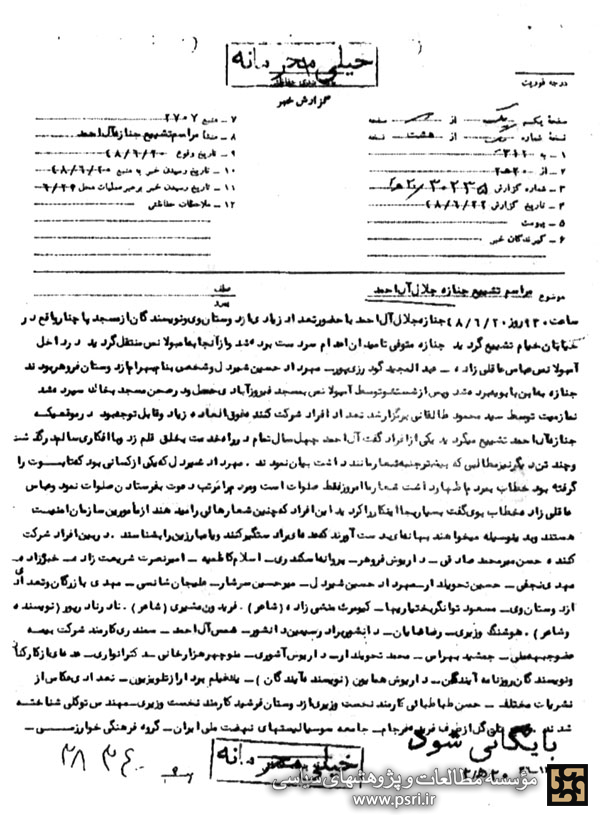 خیلی محرمانه
گزارش خبر
درجه فوریت
صفحه یک از صفحه
نسخه شماره از هشت نسخه
۱ - به ۳۱۲
۲ - از ۲۰ه۲
۳ - شماره گزارش
۴ - تاریخ گزارش ۴۸/۶/۲۲
۵ - پیوست
۶ - گیرندگان خبر
۷ - منبع ۲۷۰۷
۸ - منشأ مراسم تشییع جنازه آل احمد
۹ - تاریخ وقوع ۴۸/۶/۲۰
۱۰ - تاریخ رسیدن خبر به منبع ۴۸/۶/۲۰
۱۱ - تاریخ رسیدن خبر برهبر عملیات محل
۱۲ - ملاحظات حفاظتی
موضوع مراسم تشییع جنازه جلال آل احمد
ساعت ۹۳۰ روز ۴۸/۶/۲۰ جنازه جلال آل احمد با حضور تعداد زیادی از دوستان وی و نویسندگان از مسجد پاچنار واقع در
خیابان خیام تشییع گردید جنازه متوفی تا میدان اعدام سردست برده شد و از آنجا به آمبولانس منتقل گردید در داخل
آمبولانس عباس عاقلی زاده - عبدالمجید گودرزی پور - مهرداد حسین شیردل و شخصی بنام بهرام از دوستان فروهر بودند
جنازه به ابن بابویه برده شد وپس از شستشو توسط آمبولانس بمسجد فیروزآبادی حمل و در صحن مسجد بخاک سپرده شد
نماز میت توسط سید محمود طالقانی برگزار شد تعداد افراد شرکت کننده فوق العاده زیاد و قابل توجه بود در موقعیکه
جنازه آل احمد تشییع میگردید یکی از افراد گفت آل احمد چهل سال تمام در راه خدمت بخلق قلم زد وبا افکاری سالم درگذشت
وچند تن دیگر نیز مطالبی که بیشتر جنبه شعار مانند داشت بیان نمودند . مهرداد شیردل که یکی از کسانی بود که تابوت را
گرفته بود خطاب بمردم اظهار داشت شعار ما امروز فقط صلوات است ومردم را مرتب دعوت بفرستادن صلوات نمود وعباس
عاقلی زاده خطاب بوی گفت بسیار بجا اینکار را کردید این افراد که چنین شعارهائی را میدهند از مأمورین سازمان امنیت
هستند وبدینوسیله میخواهند بهانه ای بدست آورند که عده ای را دستگیر کنند ویا مبارزین را بشناسند . در بین افراد شرکت
کننده حسن میرمحمد صادقی - داریوش فروهر - پروانه اسکندری - اسلام کاظمیه - امیرنصرت شریعت زاده - خبره زاده -
مهدی نجفی - حسین تحویلدار - مهرداد حسین شیردل - میرحسین سرشار - علیجان شانسی - مهدی بازرگان وتعدادی
از دوستان وی - مسعود توانگر بختیاریها - کیومرث منشی زاده (شاعر) . فریدون مشیری (شاعر) . نادر نادرپور (نویسنده
وشاعر) . هوشنگ وزیری - رضا شایان - دانشور برادر سیمین دانشور - شمس آل احمد - صفدری کارمند شرکت بیمه
عضو جبهه ملی - جمشید بهرامی - محمد تحویلدار - داریوش آشوری - منوچهر هزارخانی - دکتر انواری - عده ای از کارکنان
ونویسندگان روزنامه آیندگان - داریوش همایون (نویسنده آیندگان) - یک فیلمبردار از تلویزیون - تعدادی عکاس از
نشریات مختلف - حسن طباطبائی کارمند نخست وزیری از دوستان فرشید کارمند نخست وزیری - مهندس توکلی شناخته
شدند گل از طرف فرجام - جامعه سوسیالیستهای نهضت ملی ایران - گروه فرهنگی خوارزمی -
بایگانی شود
خیلی محرمانه
مؤسسه مطالعات و پژوهشهای سیاسی
www.psri.ir